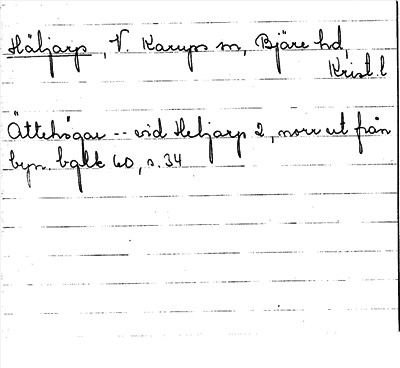 Häljarp, V. Karups sn, Bjäre hd,
Krist. l
Ättehögar -- vid Heljarp 2, norr ut från
byn. bqlk 60, s. 34